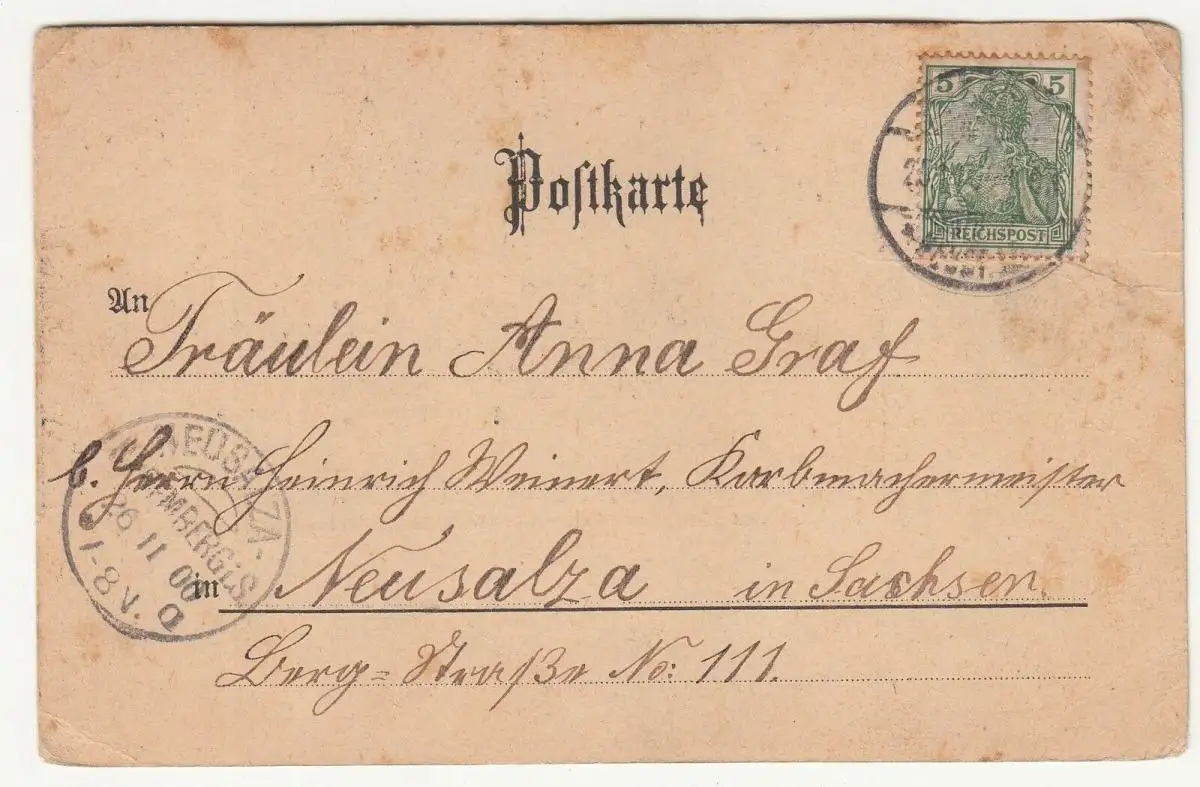 5 5
REICHSPOST
Postkarte
An
Fräulein Anna Graf
b. Herrn Heinrich Weinert, Korbmachermeister
in Neusalza in Sachsen.
Berg=Straße No: 111.
NEUSALZA-
SPREMBERG i. S.
26 11 00
7-8 V.